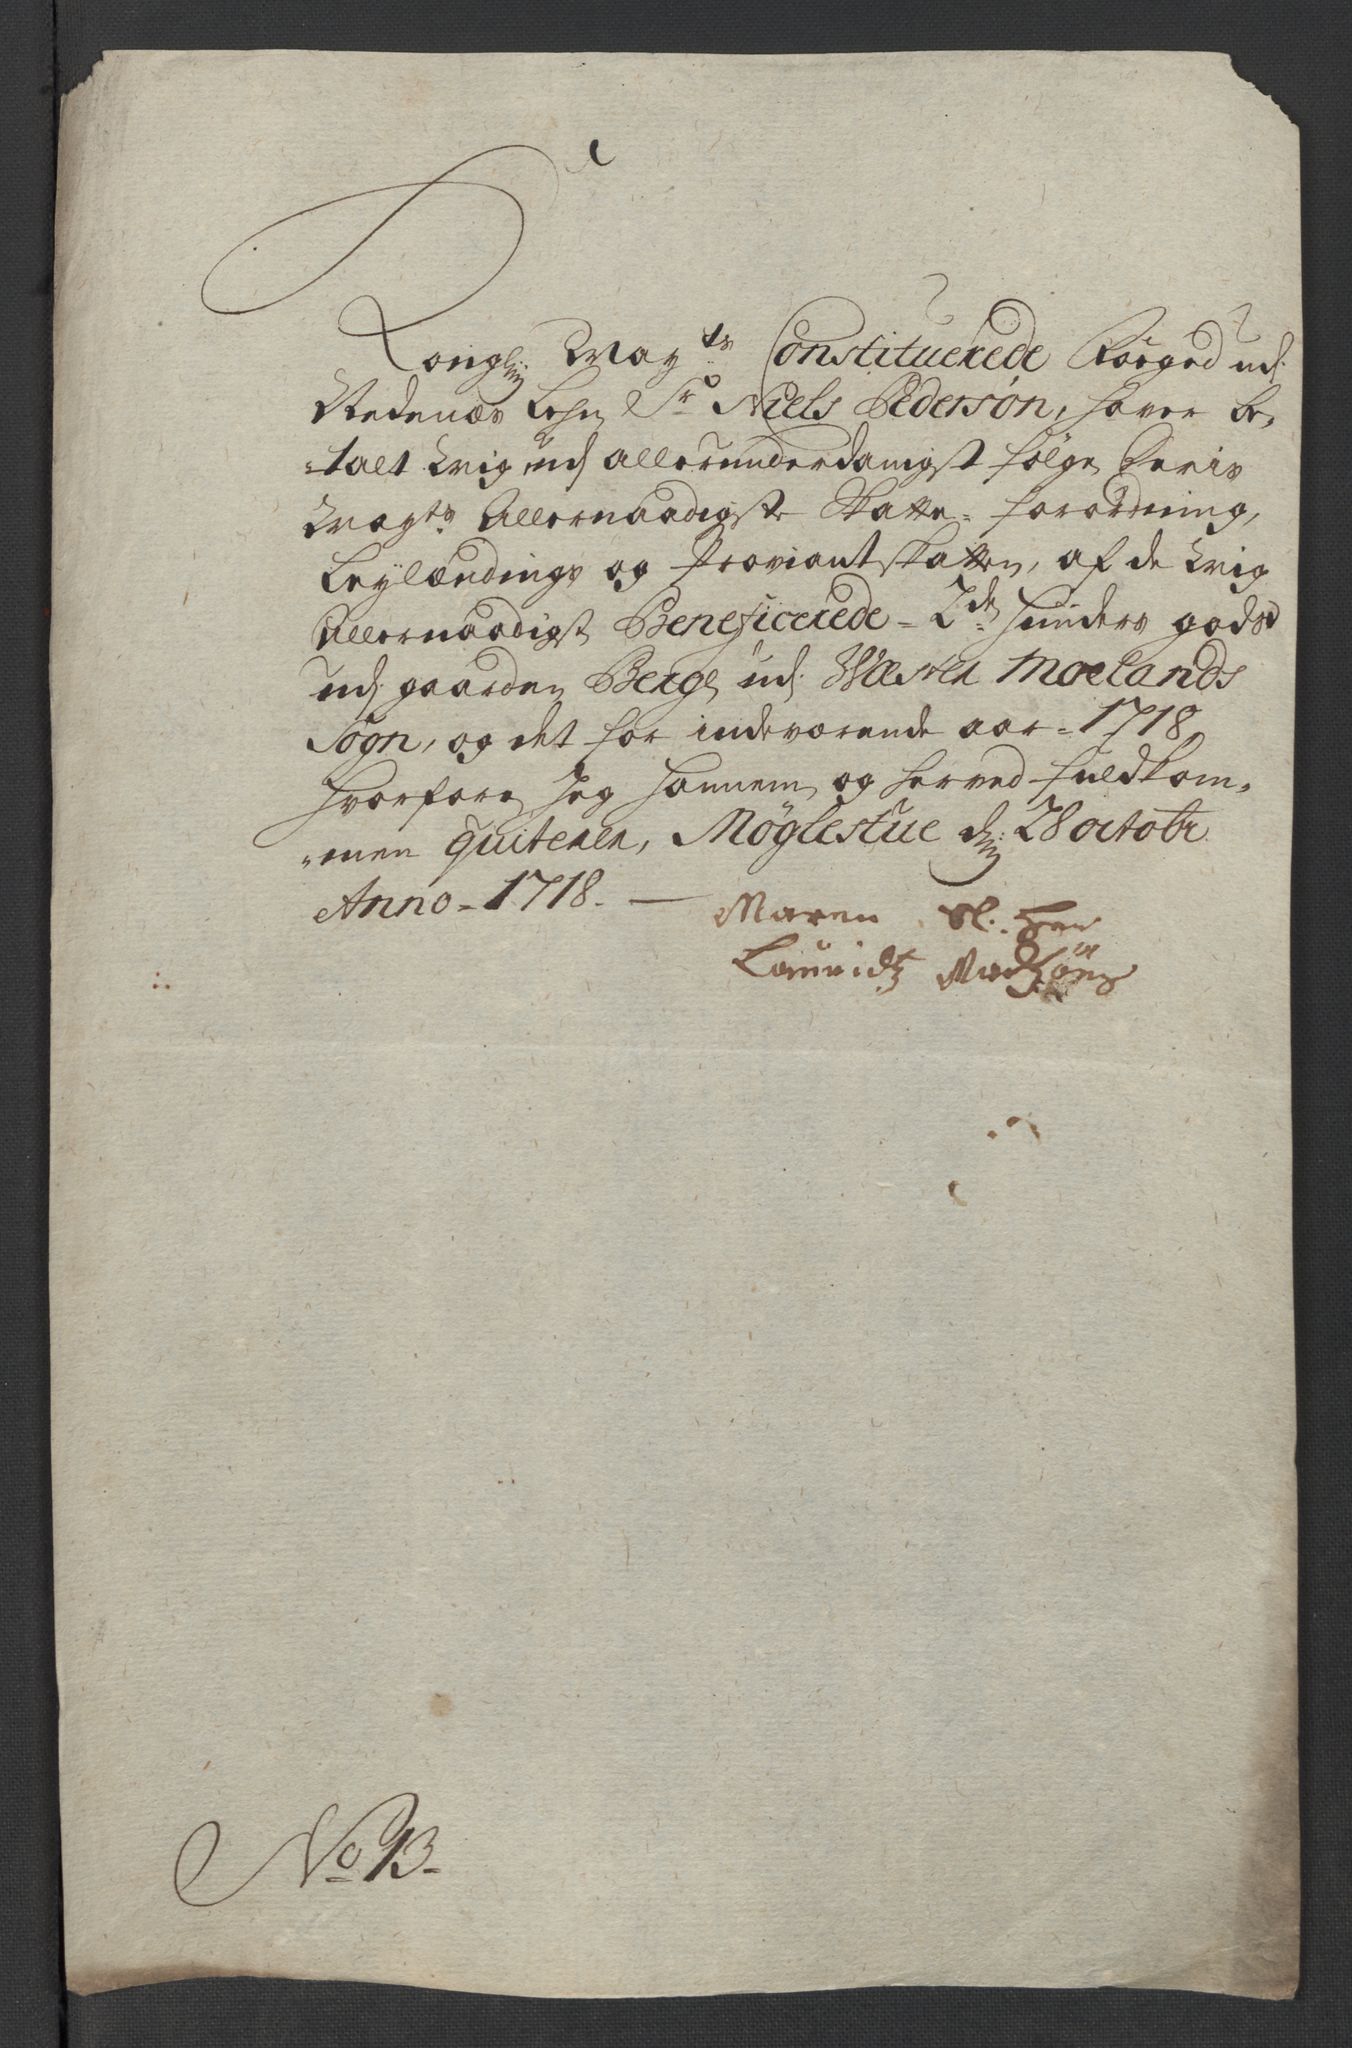 Kongl: May.ts Constituerede Foeged udj
Nedenæs Lehn Sr Niels Pedersøn, haver be,
-talt mig, udj allerunderdanigst følge Deris
May.ts Allernaadigste Skatte- forordning,
Leylændings og Proviant skatten, af de mig
Allernaadigst Beneficerede - 2de huuders gods
udj gaarden Berge udj Wæster Moelands
Sogn, og det for indeværende aar - 1718
Hvorfore Jeg hannem og herved fuldkom,
-men quiterer, Møglestue d: 28 octobr
Anno - 1718. -
Maren Sl. Her
Lauridtz Madsöns
No 13.